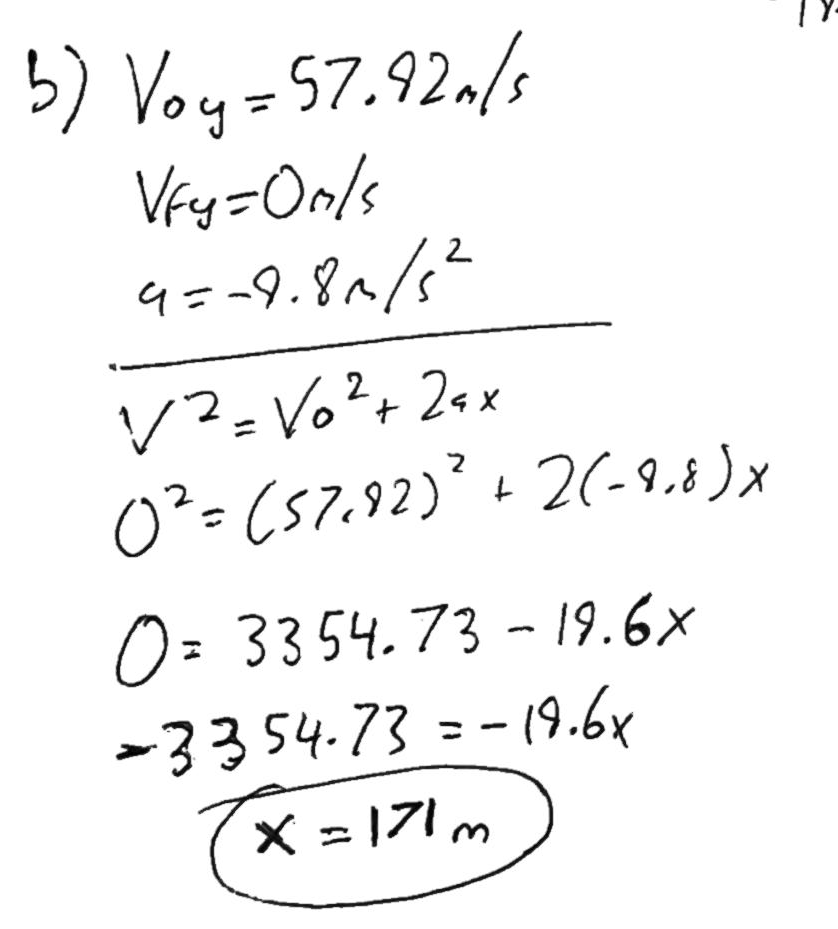 b) Voy = 57.92m/s
Vfy = 0m/s
a = -9.8m/s²
V² = Vo² + 2ax
0² = (57.92)² + 2(-9.8)x
0 = 3354.73 - 19.6x
-3354.73 = -19.6x
x = 171m